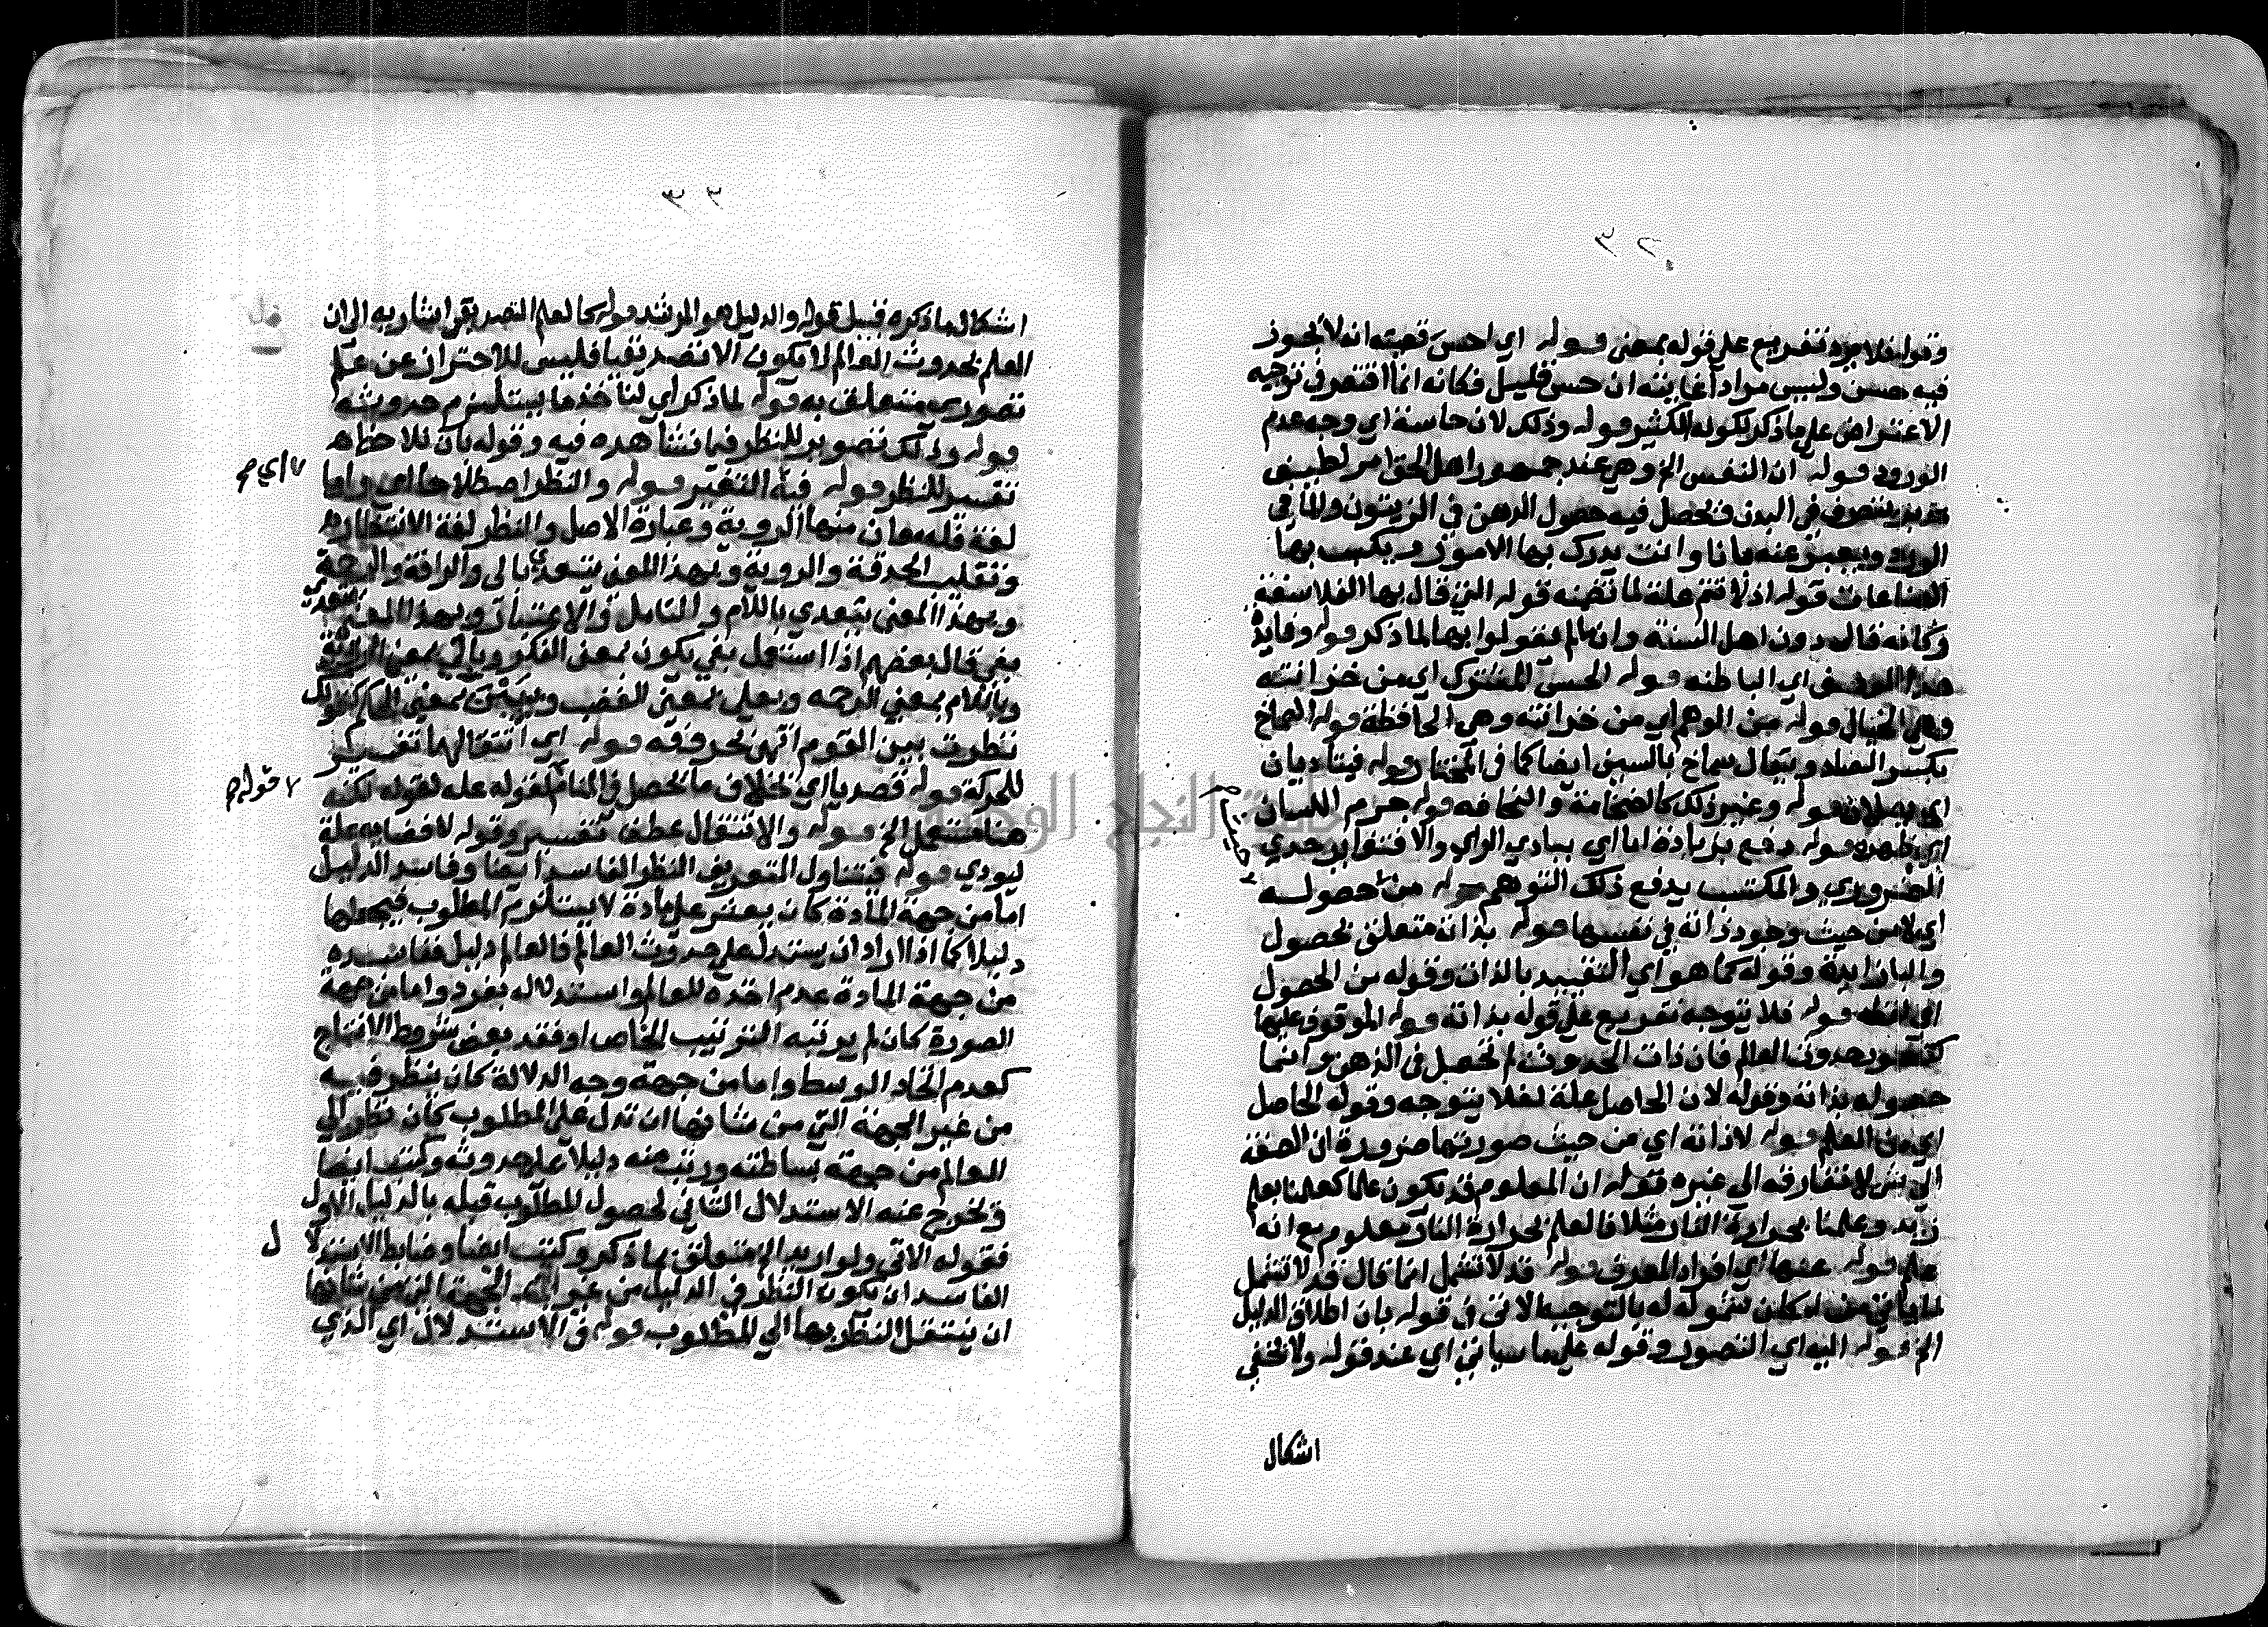 ٣٢
وقوله فلا يرد تفريع على قوله بمعنى قوله اي احس قصته انه لا يجوز
فيه حسن وليس مرادا غايته ان حس قليل فكانه انما اقتصر في توجيه
الاعتراض على ما ذكر لكونه الكثير قوله وذلك لان حاسة اي وجه عدم
الورود قوله ان النفس الخ وهي عند جمهور اهل الحق امر لطيف
يتصرف في البدن فتحصل فيه حصول الدهن في الزيتون والماء في
الورد ويعبر عنه بانا وانت يدرك بها الامور ويكتسب بها
الصناعات قوله اذ لا تتم علة لما تضمنه قوله التي قال بها الفلاسفة
وكانه قال دون اهل السنة وان لم يقولوا بها لما ذكر قوله وفايدة
هذا الوصف اي الباطنة قوله الحس المشترك اي من خزانته
وهي الخيال قوله من الوهم اي من خزانته وهي الحافظة قوله الصماخ
بكسر الصاد ويقال سماخ بالسين ايضا كما في المختار قوله فيتاديان
اي يصلان قوله وغير ذلك كالضخامة والنحافة قوله جرم اللسان
اي ظهره قوله دفع بزيادة اما اي ببادي الراي والا فتغاير حدي
الضروري والمكتسب يدفع ذلك التوهم قوله من حصوله
اي لا من حيث وجود ذاته في نفسها قوله بذاته متعلق بحصول
والبا وقوله كما هو اي التقييد بالذات وقوله من الحصول
اي لفظه قوله فلا يتوجه تفريع على قوله بذاته قوله الموقوف عليها
كتصور حدوث العالم فان ذات الحدوث لم تحصل في الذهن وانما
حصوله بذاته وقوله لان الحاصل علة لفلا يتوجه وقوله الحاصل
اي من العلم قوله لا ذاته اي من حيث صورتها ضرورة ان الصفة
الى غيره قوله ان المعلوم قد يكون علما كعلمنا بعلم
زيد وعلمنا بحرارة النار مثلا فالعلم بحرارة النار معلوم مع انه
علم قوله عنها اي افراد المعرف قوله قد لا تشمل انما قال قد لا تشمل
لما ياتي من امكان شموله له بالتوجيه الاتي في قوله بان اطلاق الدليل
الخ قوله اليه اي التصور وقوله على ما سياتي اي عند قوله ولا يخفى
اشكال
٣٣
اشكال ما ذكره قبيل قوله والدليل هو المرشد قوله كالعلم التصديقي اشار به الى ان
العلم بحدوث العالم لا يكون الا تصديقيا فليس للاحتراز عن علم
تصوري متعلق به قوله لما ذكر اي لنأخذ ما يستلزم حدوثه
قوله وذلك تصوير للنظر فيما نشاهده فيه وقوله بان نلاحظه
تفسير للنظر قوله فيه التغير قوله والنظر اصطلاحا اي واما
لغة فله معان منها الروية وعبارة الاصل والنظر لغة الانتظار
وتقليب الحدقة والروية وبهذا المعنى يتعدى بالى والرافة والرحمة
وبهذا المعنى يتعدى باللام والتامل والاعتبار وبهذا المعنى يتعدى
بفي قال بعضهم اذا استعمل بفي يكون بمعنى الفكر وبالى بمعنى الروية
وباللام بمعنى الرحمة وبعلى بمعنى الغضب وببين بمعنى الحكم كقولك
نظرت بين القوم انتهى بحروفه قوله اي انتقالها تفسير
للحركة قوله قصديا اي بخلاف ما يحصل في المنام لقوله علة لقوله لكنه
هنا مستعمل الخ قوله والانتقال عطف تفسير وقوله لافضايه علة
ليودي قوله فتناول التعريف النظر الفاسد ايضا وفاسد الدليل
اما من جهة المادة كان يعثر على مادة لا يستلزم المطلوب فيجعلها
دليلا كما اذا اراد ان يستدل على حدوث العالم فالعالم دليل ففاسده
من جهة المادة عدم اخذه للعالم واستدلاله بغيره واما من جهة
الصورة كان لم يرتبه الترتيب الخاص او فقد بعض شروط الانتاج
كعدم اتحاد الوسط واما من جهة وجه الدلالة كان ينظر فيه
من غير الجهة التي من شانها ان تدل على المطلوب كان نظر الى
العالم من جهة بساطته ورتب منه دليلا على حدوثه وكتب ايضا
فيخرج عنه الاستدلال الثاني لحصول المطلوب قبله بالدليل الاول
فقوله الاتي ولو اريد الخ متعلق بما ذكر وكتب ايضا وضابط الاستدلال
الفاسد ان يكون النظر في الدليل من غير الجهة التي من شانها
ان ينتقل النظر بها الى المطلوب قوله في الاستدلال اي الذي
اي صح
قوله صح
ل